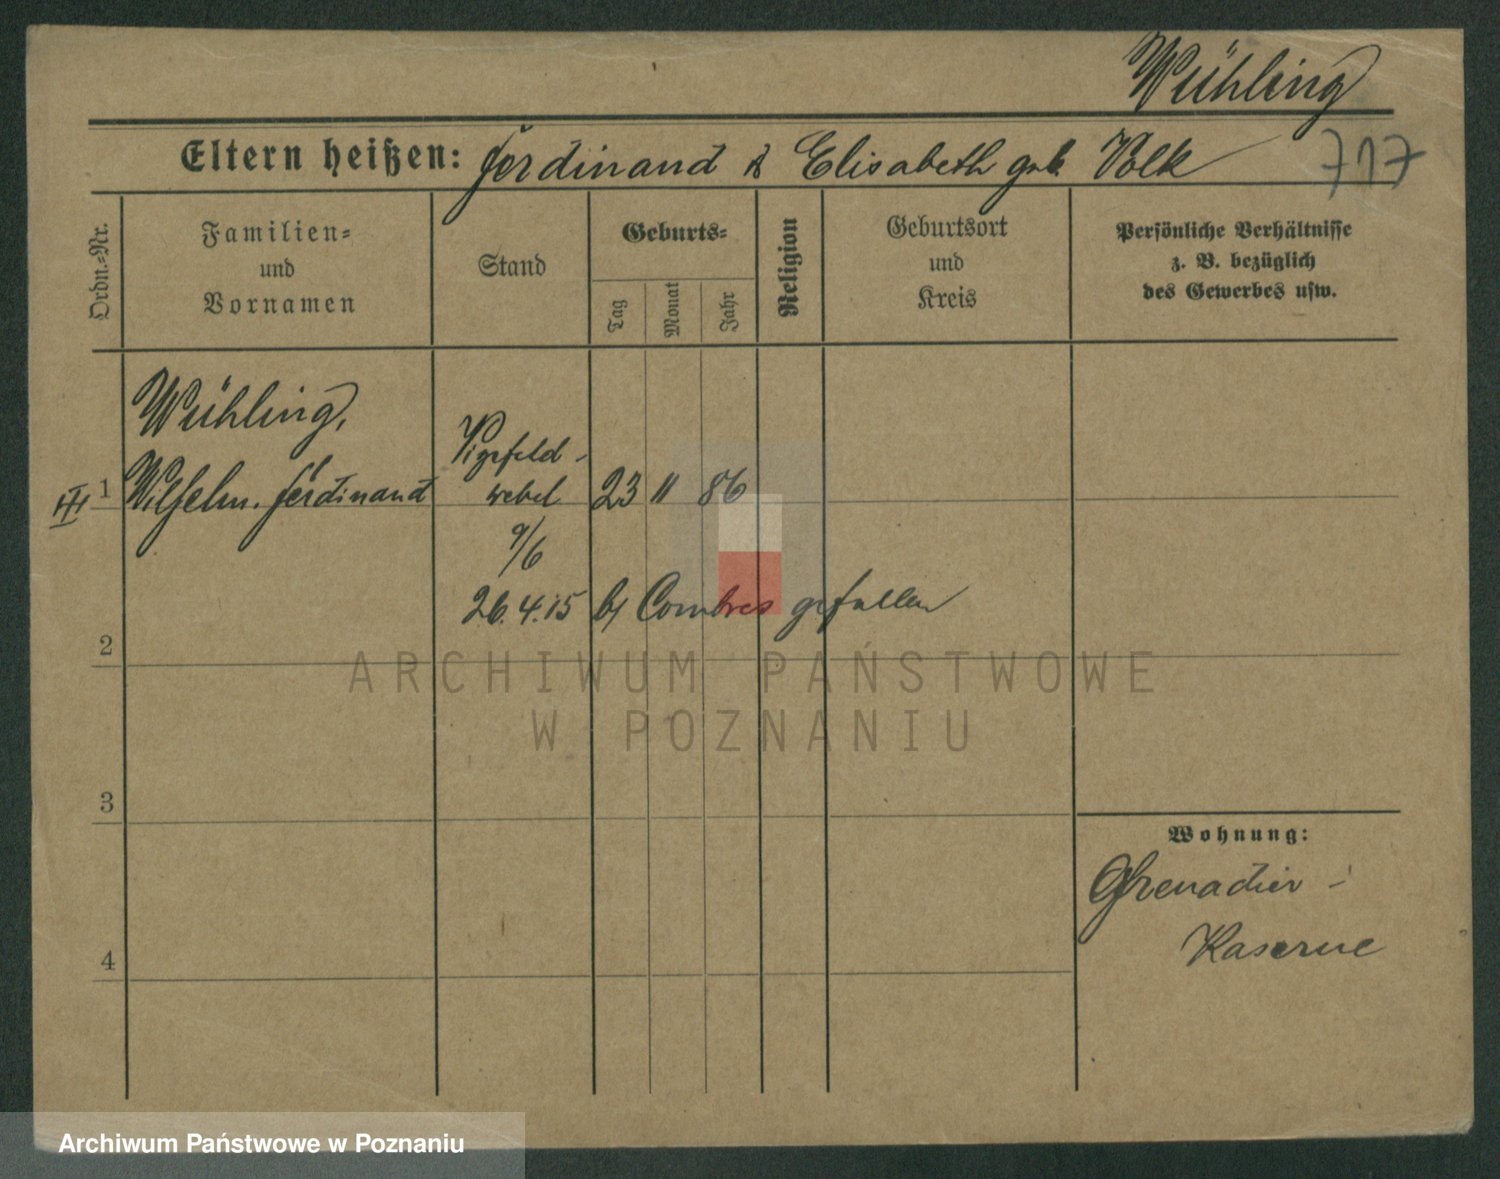 Wühling
Eltern heißen: Ferdinand & Elisabeth geb. Volk
717
Ordn.-Nr.
Familien-
und
Vornamen
Stand
Geburts-
Tag
Monat
Jahr
Religion
Geburtsort
und
Kreis
Persönliche Verhältnisse
z. B. bezüglich
des Gewerbes usw.
Wühling,
Vizefeld-
III 1 Wilhelm. Ferdinand
webel 23 11 86
9/6
26.4.15 b/ Combres gefallen
2
ARCHIWUM PAŃSTWOWE
W POZNANIU
3
Wohnung:
Grenadier-
Kaserne
4
Archiwum Państwowe w Poznaniu